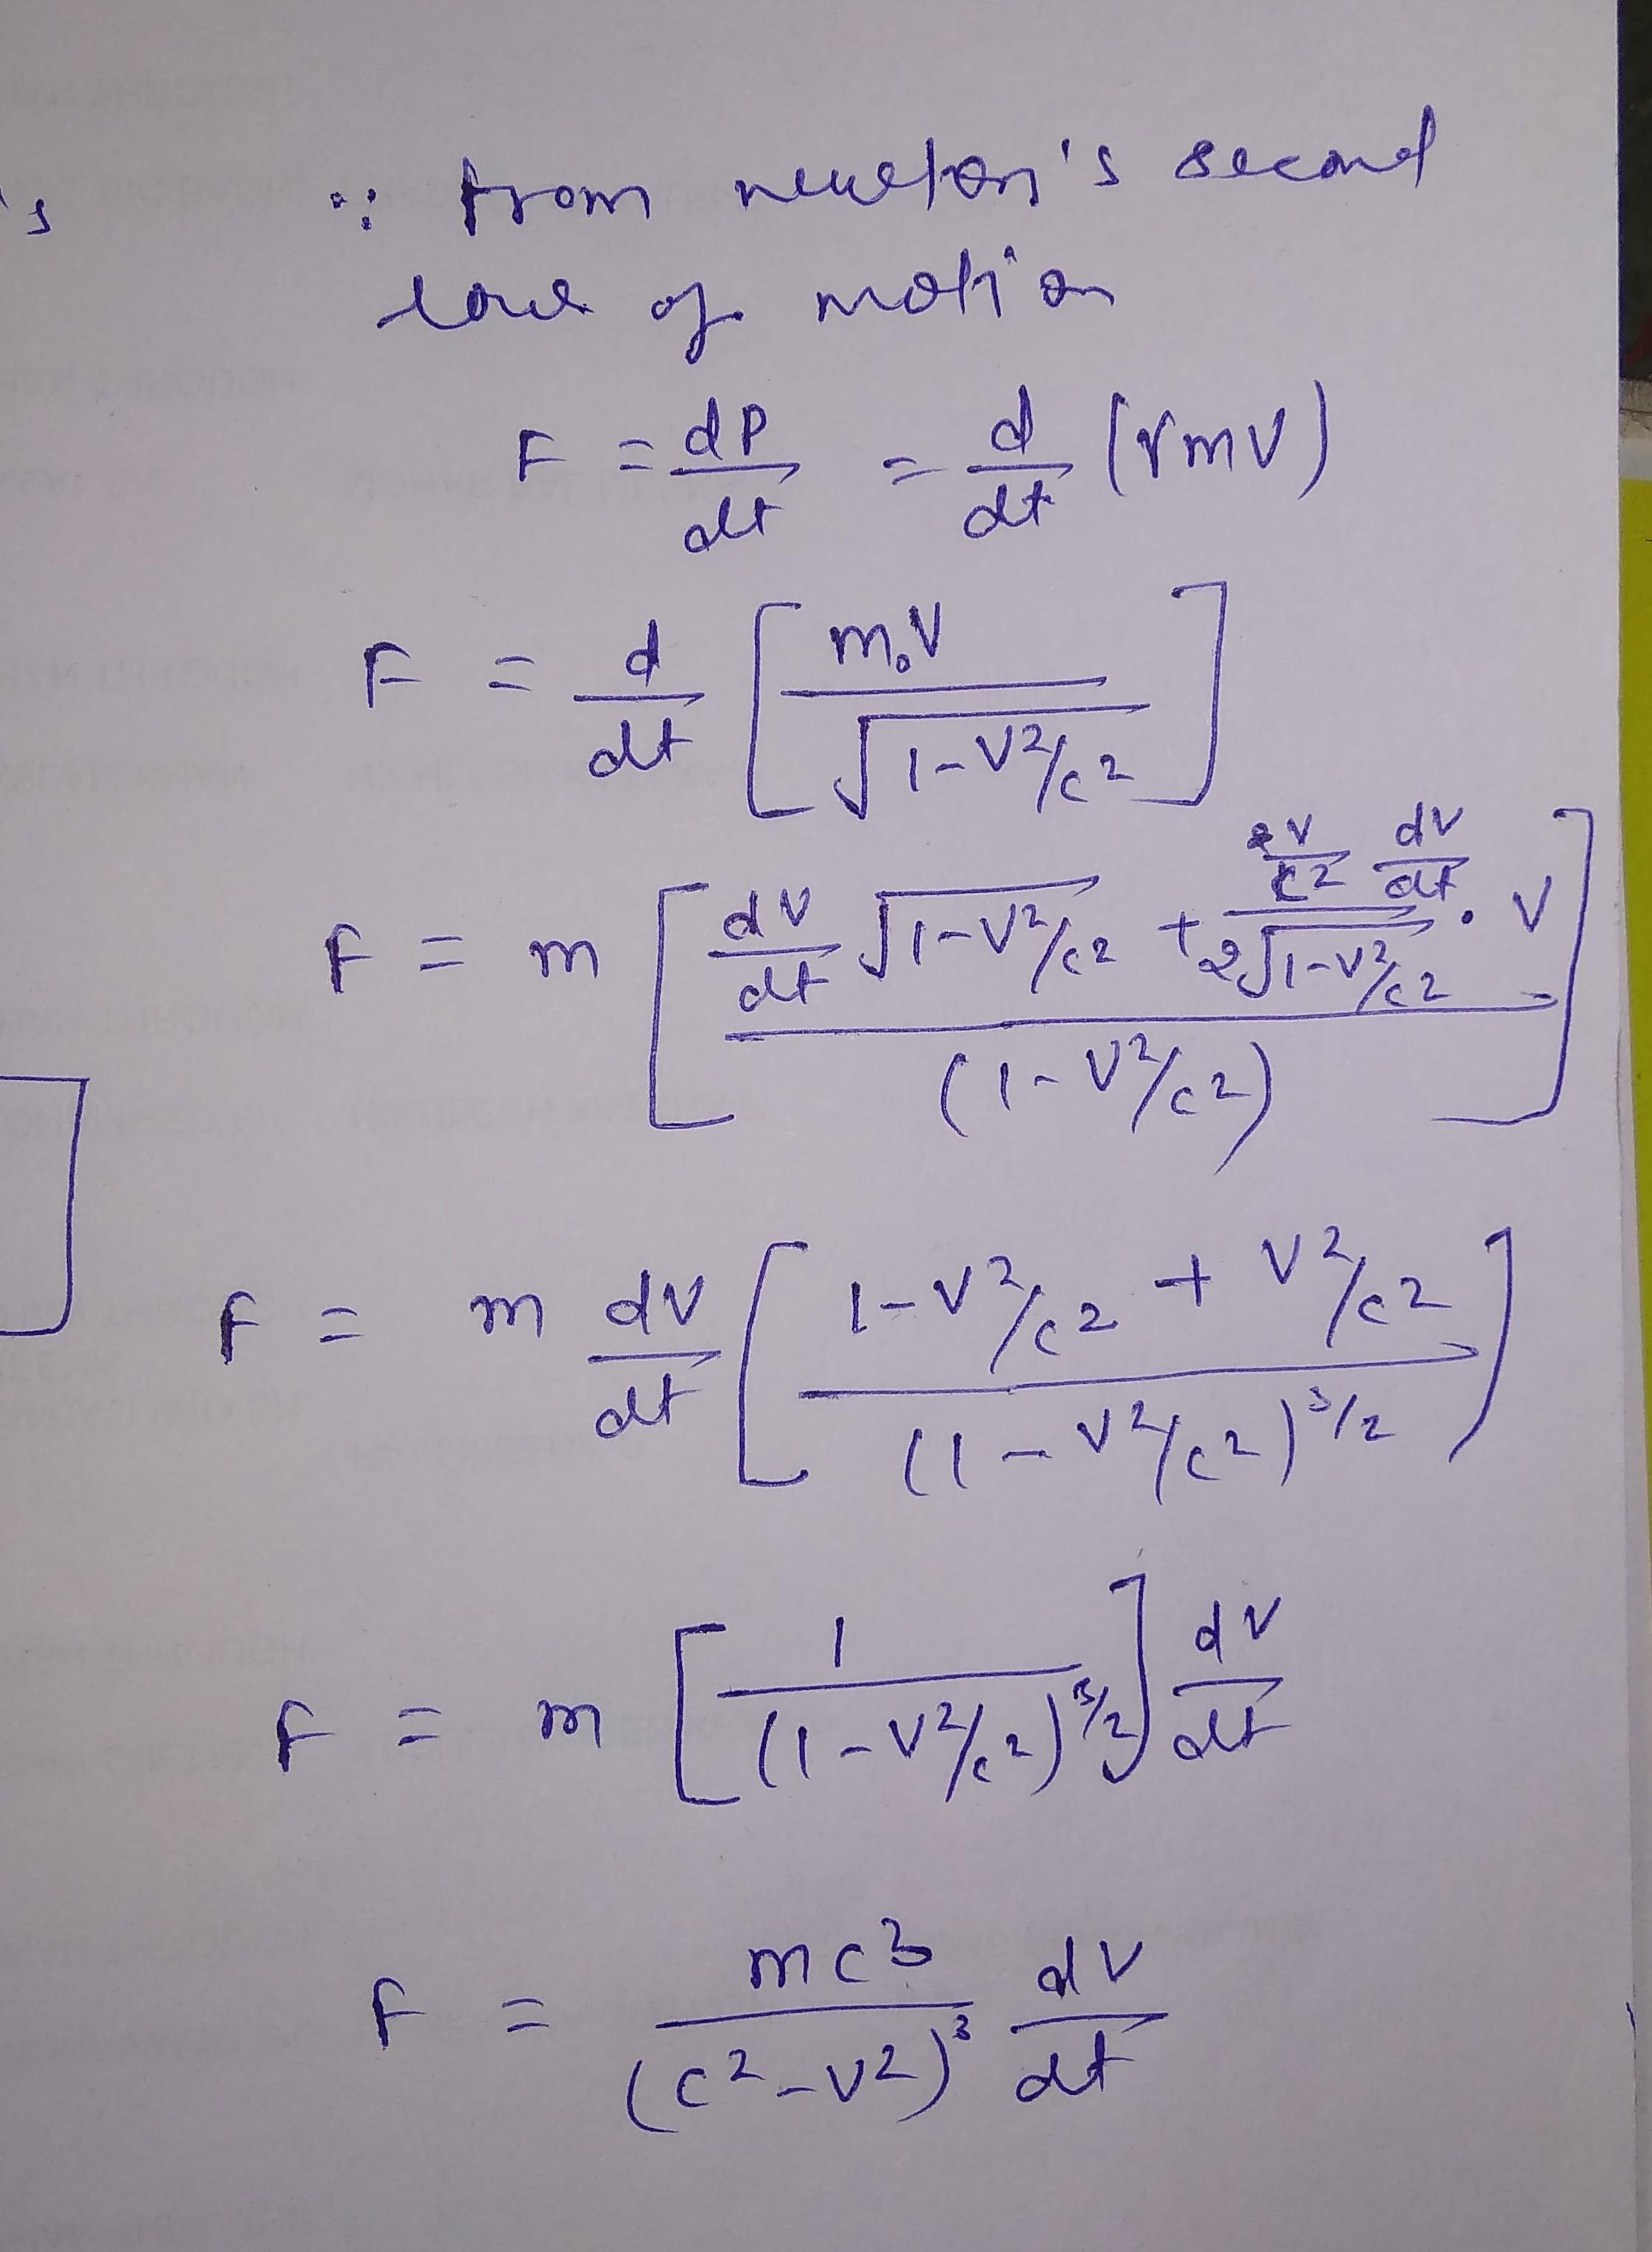 's
∵ from newton's second
law of motion
F = dP/dt = d/dt (γmv)
F = d/dt [m₀v / √(1-v²/c²)]
F = m [(dv/dt √(1-v²/c²) + ((2v/c² dv/dt) / (2√(1-v²/c²))) . v) / (1-v²/c²)]
F = m dv/dt [(1-v²/c² + v²/c²) / (1-v²/c²)^3/2]
F = m [1 / (1-v²/c²)^3/2] dv/dt
F = mc³ / (c²-v²)³ dv/dt